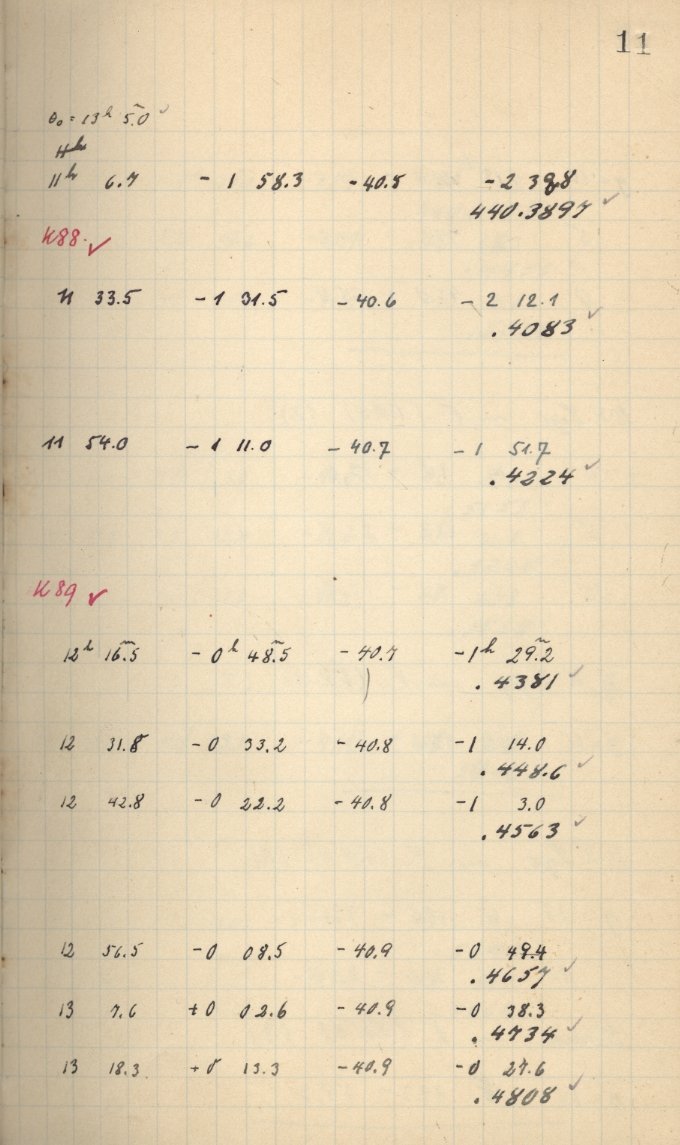 11
θ₀ = 13ʰ 5.ᵐ0 ✓
11ʰ 6.7 - 1 58.3 - 40.5 - 2 38.8
440.3897 ✓
K88. ✓
11 33.5 - 1 31.5 - 40.6 - 2 12.1
.4083 ✓
11 54.0 - 1 11.0 - 40.7 - 1 51.7
.4224 ✓
K89 ✓
12ʰ 16.ᵐ5 - 0ʰ 48.ᵐ5 - 40.7 - 1ʰ 29.ᵐ2
.4381 ✓
12 31.8 - 0 33.2 - 40.8 - 1 14.0
.448.6 ✓
12 42.8 - 0 22.2 - 40.8 - 1 3.0
.4563 ✓
12 56.5 - 0 08.5 - 40.9 - 0 49.4
.4657 ✓
13 7.6 + 0 02.6 - 40.9 - 0 38.3
.4734 ✓
13 18.3 + 0 13.3 - 40.9 - 0 27.6
.4808 ✓